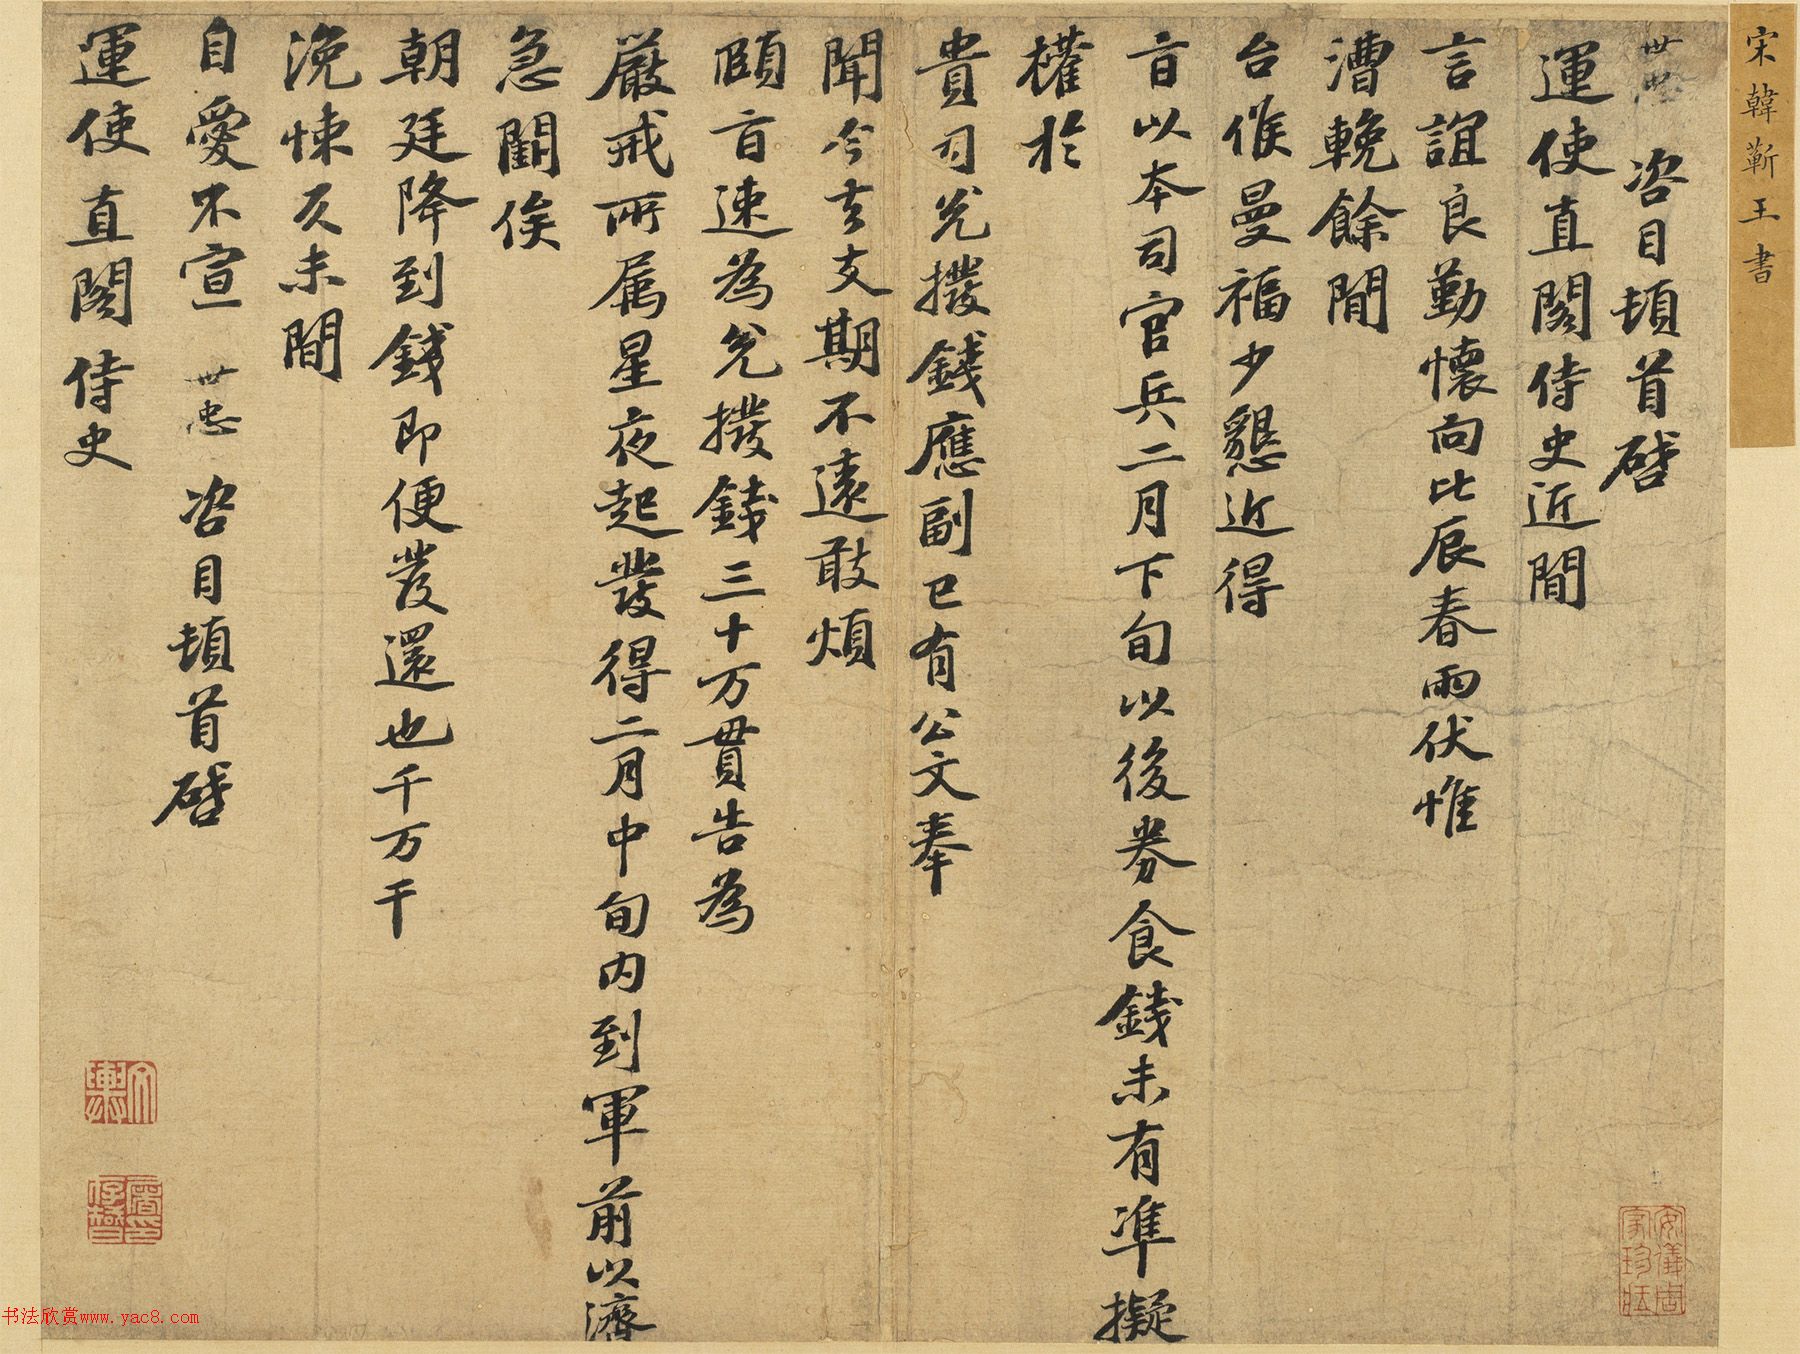 宋韓蘄王書
世忠 咨目頓首啓
運使直閣侍史近聞
言誼良勤懷向比辰春雨伏惟
漕輓餘閒
台候曼福少懇近得
旨以本司官兵二月下旬以後券食錢未有準擬
權於
貴司兌撥錢應副已有公文奉
聞今去支期不遠敢煩
頤旨速為兌撥錢三十万貫告為
嚴戒所属星夜起發得二月中旬内到軍前以濟
急闕俟
朝廷降到錢即便發還也千万千
浼悚久未間
自愛不宣 世忠 咨目頓首啓
運使直閣侍史
书法欣赏www.yac8.com